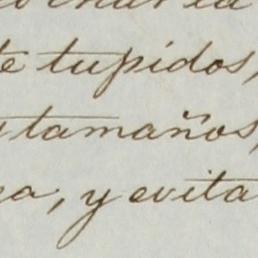 te tupidos,
tamaños,
, y evita